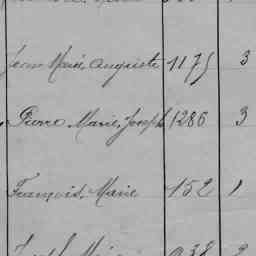 Jean Marie Auguste 1175 3
Pierre Marie Joseph 1286 3
François Marie 152 1